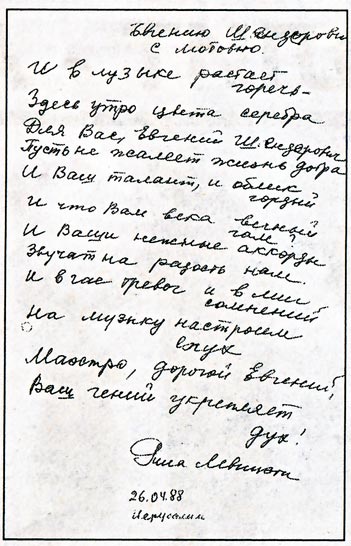 Евгению Шендеровичу
с любовью.
И в музыке растает
горечь-
Здесь утро цвета серебра
Для Вас, Евгений Шендерович
Пусть не жалеет жизнь добра
И Ваш талант, и облик
гордый
И что Вам века вечный
гам?
И Ваши нежные аккорды
Звучат на радость нам.
И в час тревог и в миг
сомнений
На музыку настроем
слух
Маэстро, дорогой Евгений,
Ваш гений укрепляет
дух!
26.04.88
Иерусалим